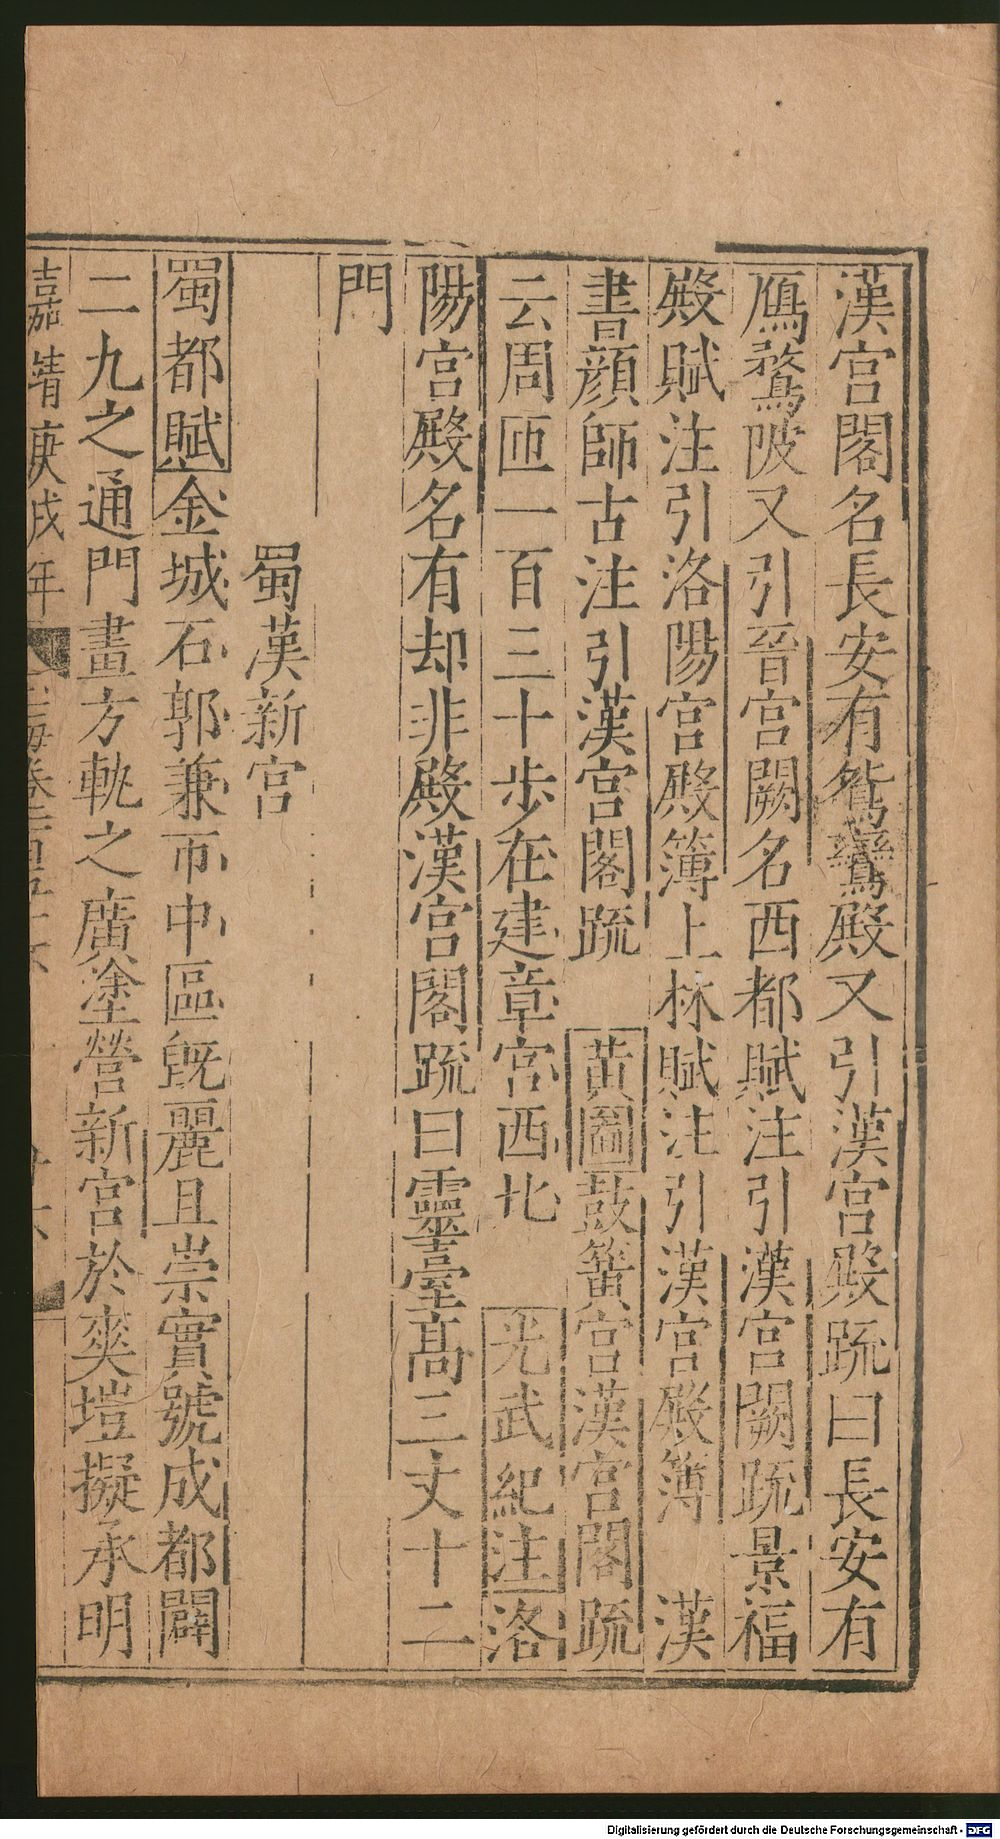 漢宮閣名長安有鴛鸞殿又引漢宮殿疏曰長安有
鴈鶩陂又引晉宮闕名西都賦注引漢宮闕疏景福
殿賦注引洛陽宮殿簿上林賦注引漢宮殿簿 漢
書顔師古注引漢宮閣疏 黄圖鼓簧宮漢宮閣疏
云周匝一百三十歩在建章宮西北 光武紀注洛
陽宮殿名有却非殿漢宮閣疏曰靈臺髙三丈十二
門
蜀漢新宮
蜀都賦金城石郭兼帀中區旣麗且崇實號成都闢
二九之通門畫方軌之廣塗營新宮於爽塏擬承明
嘉靖庚戌年
Digitalisierung gefördert durch die Deutsche Forschungsgemeinschaft - DFG